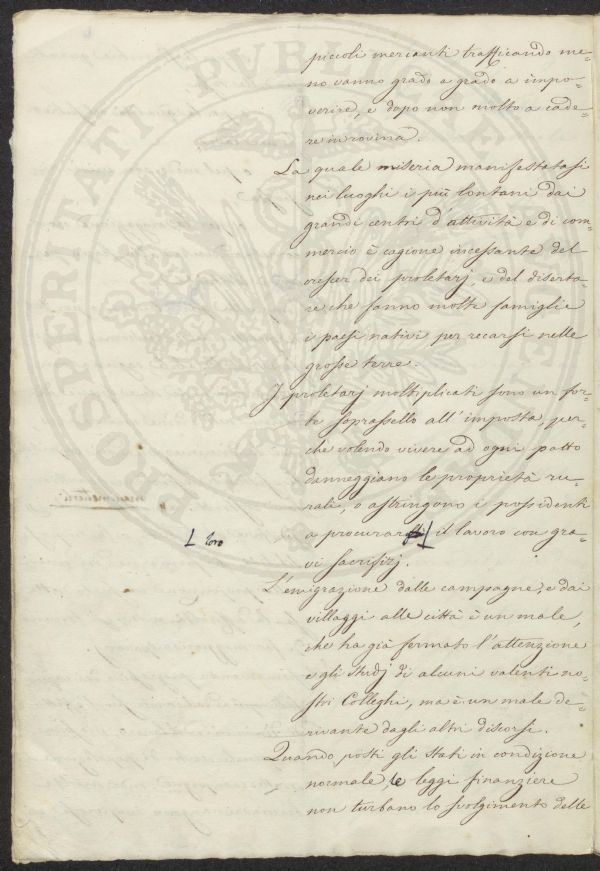 piccoli mercanti trafficando me-
no vanno grado a grado a impo-
verire, e dopo non molto a cade-
re in rovina.
La quale miseria manifestatasi
nei luoghi i più lontani dai
grandi centri d'attività e di com-
mercio è cagione incessante del
crescer dei proletarj, e del diserta-
re che fanno molte famiglie
i paesi nativi per recarsi nelle
grosse terre.
I proletarj moltiplicati sono un for-
te soprassello all'imposta, per-
chè volendo vivere ad ogni patto
danneggiano le proprietà ru-
rali, o astringono i possidenti
a procurar il lavoro con gra-
loro
vi sacrifizj.
L'emigrazione dalle campagne, e dai
villaggi alle città è un male,
che ha già fermato l'attenzione
e gli studj di alcuni valenti no-
stri Colleghi, ma è un male de-
rivante dagli altri discorsi.
Quando posti gli Stati in condizione
normale, le leggi finanziere
non turbano lo svolgimento delle
PROSPERITATI PVBLICAE